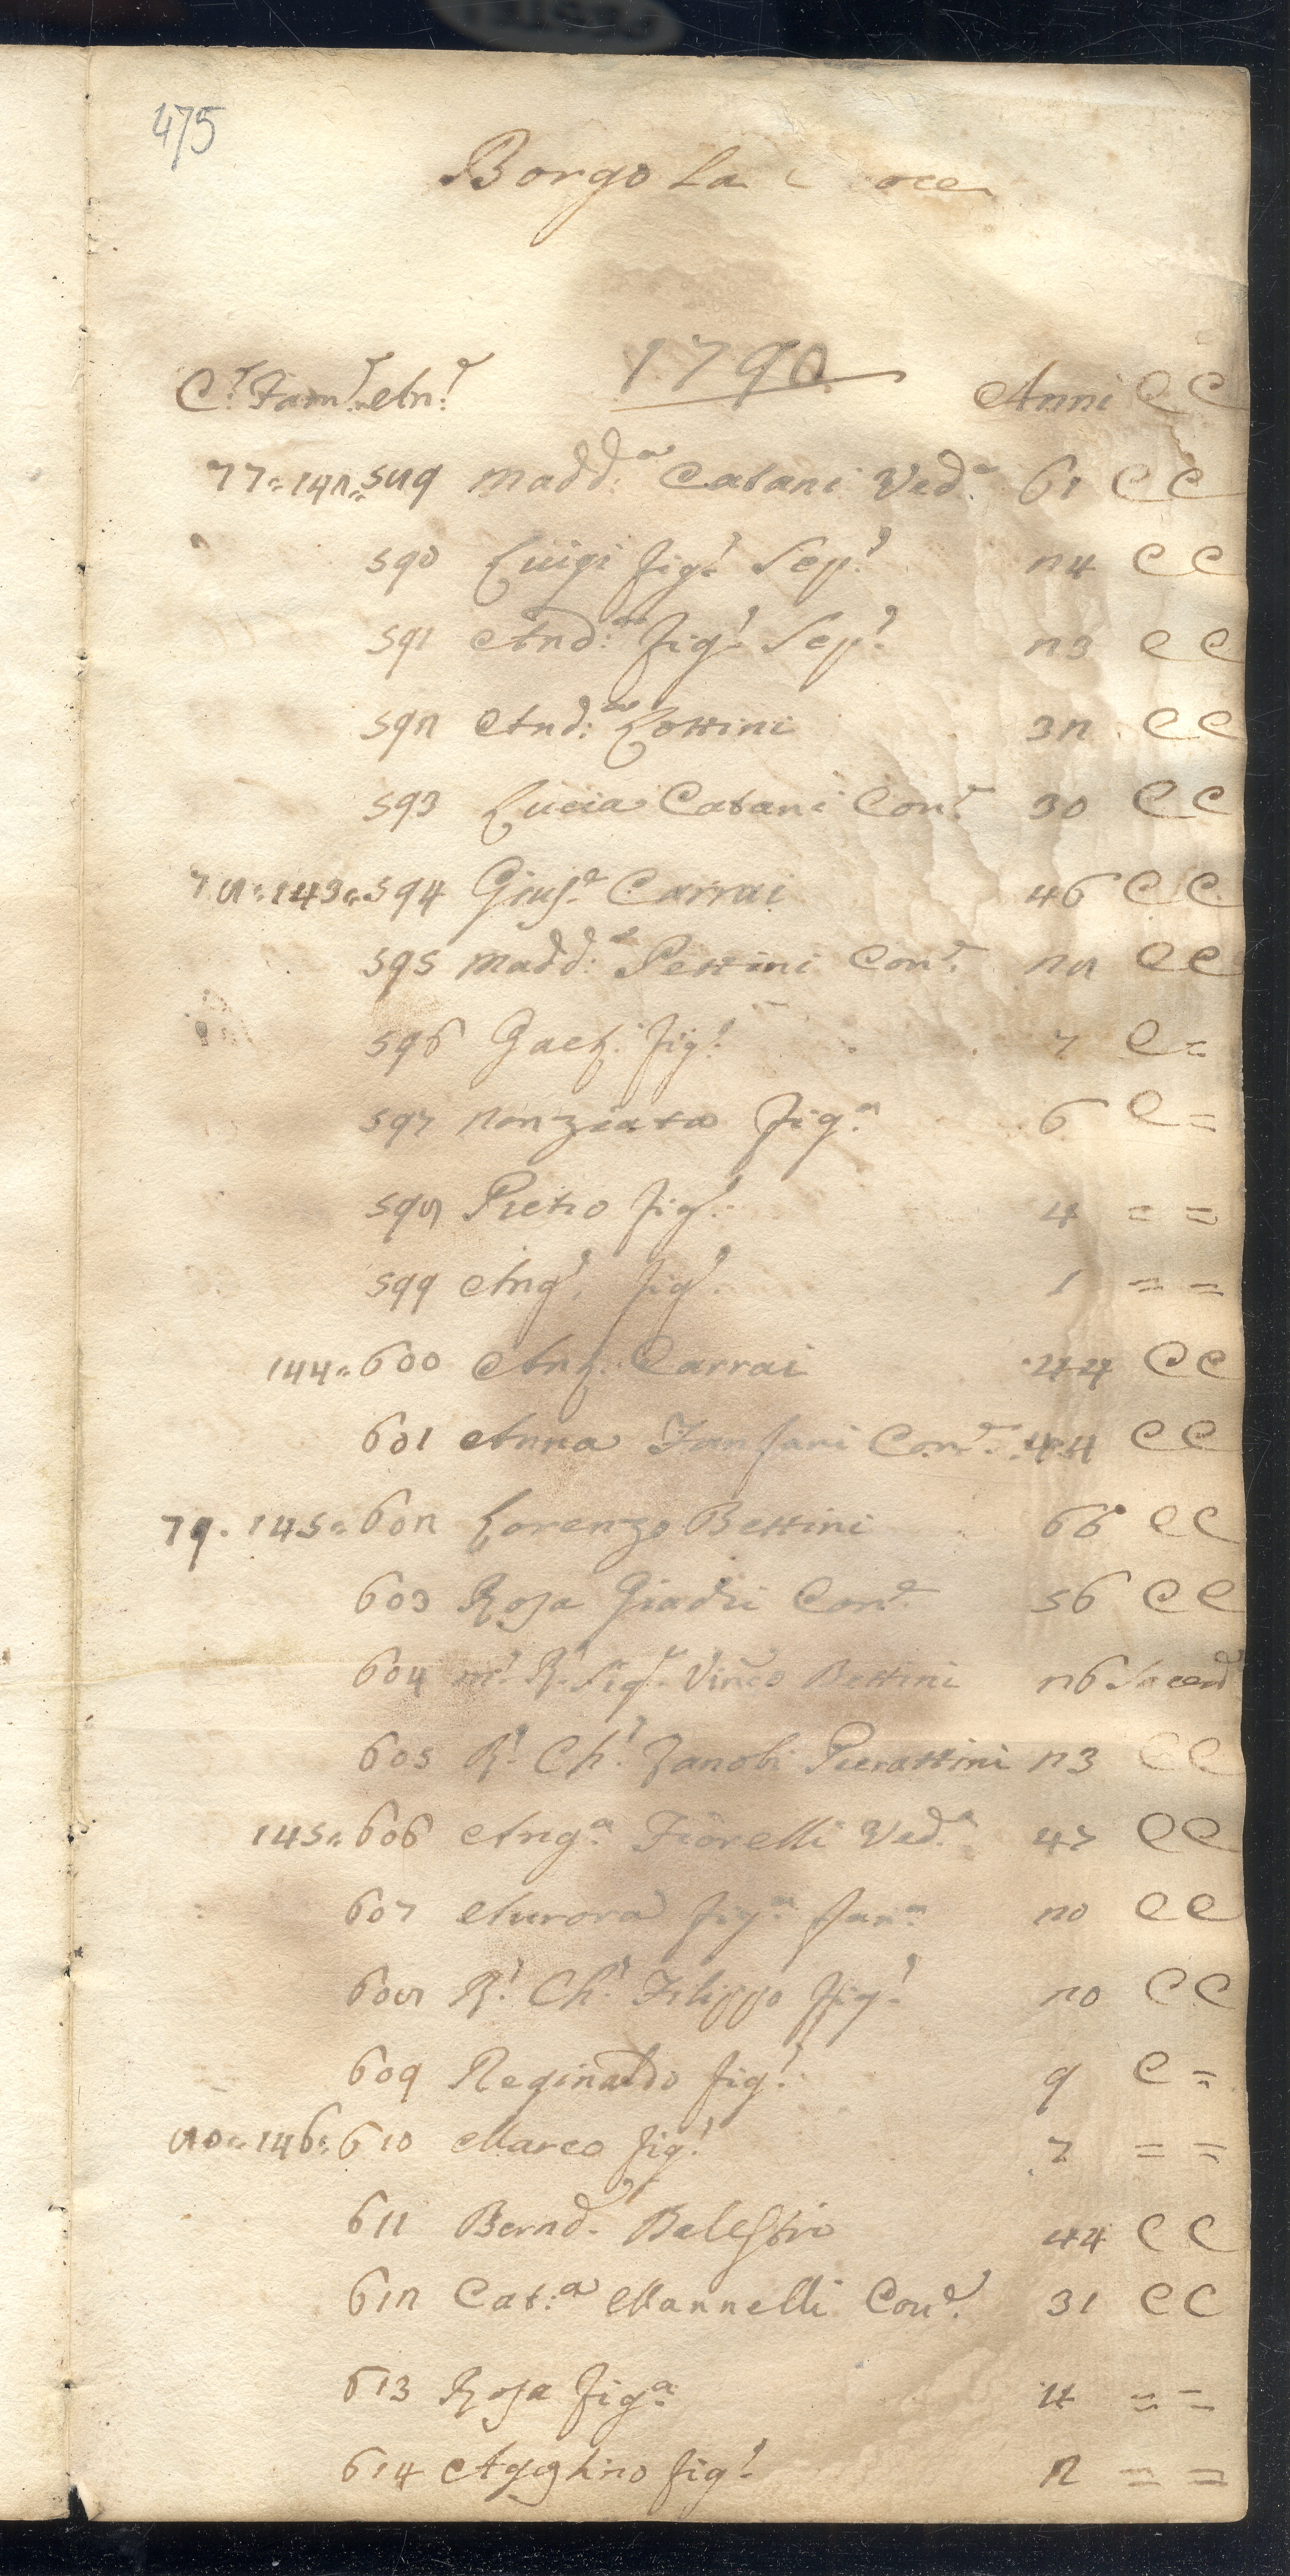 475
Borgo La C oce
1790
C.e Fam.e An.e Anni C C
77 = 142 = 589 Madd.a Catani Ved.a 61 C C
590 Luigi fig.o Sep.o 24 C C
591 And.a fig.o Sep.o 23 C C
592 And.a Lottini 32 C C
593 Lucia Catani Con.e 30 C C
78 = 143 = 594 Gius.e Carrai 46 C C
595 Madd.a Pettini Con.e 28 C C
596 Gaet. fig.o 7 C =
597 Nonziata fig.a 6 C =
598 Pietro fig.o 4 = =
599 Ang.o fig.o 1 = =
144 = 600 Ant. Carrai 44 C C
601 Anna Fanfani Con.e 44 C C
79 . 145 = 602 Lorenzo Bettini 66 C C
603 Rosa Giadri Con.e 56 C C
604 m.o R. Sig.e Vinc.o Bettini 26 Sacerd
605 R.o Ch.o Zanobi Pierattini 23 C C
145 = 606 Ang.a Fiorelli Ved.a 47 C C
607 Aurora fig.a 20 C C
608 R.o Ch.o Filippo fig.o 20 C C
609 Reginaldo fig.o 9 C =
80 = 146 = 610 Marco fig.o 7 = =
611 Bernd. Balestri 44 C C
612 Cat.a Mannelli Con.e 31 C C
613 Rosa fig.a 4 = =
614 Agghino fig.o 2 = =